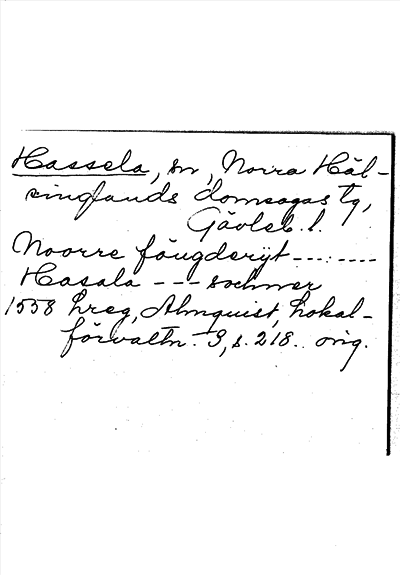 Hassela, sn, Norra Häl-
singlands domsagas tg,
Gävleb. l.
Noorre föugderijt --------
Hasala --- sochner
1558 hreg, Almquist, Lokal-
förvaltn. 3, s. 218. orig.